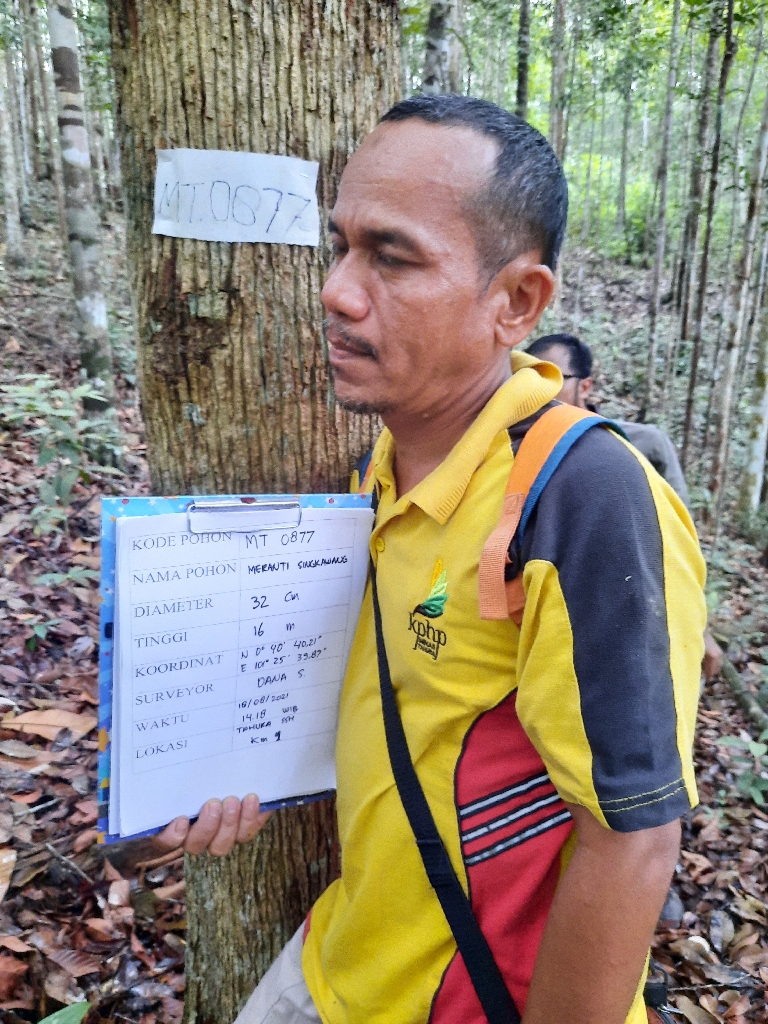 MT.0877
KODE POHON MT 0877
NAMA POHON MERANTI SINGKAWANG
DIAMETER 32 Cm
TINGGI 16 m
KOORDINAT N 0° 40' 40.21"
E 101° 25' 39.87"
SURVEYOR DANA S.
WAKTU 18/08/2021
14.18 WIB
LOKASI TAHURA SSH
Km 1
kphp